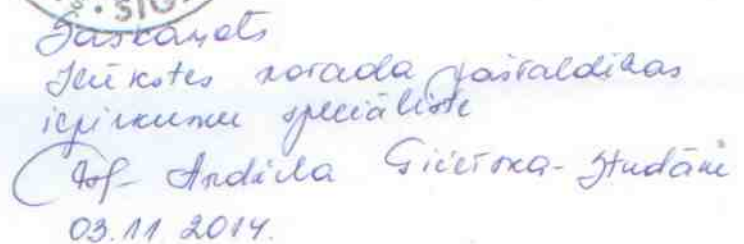 Saskaņots
Ilūkstes novada pašvaldības
iepirkumu speciāliste
Andžela
03.11 2014.